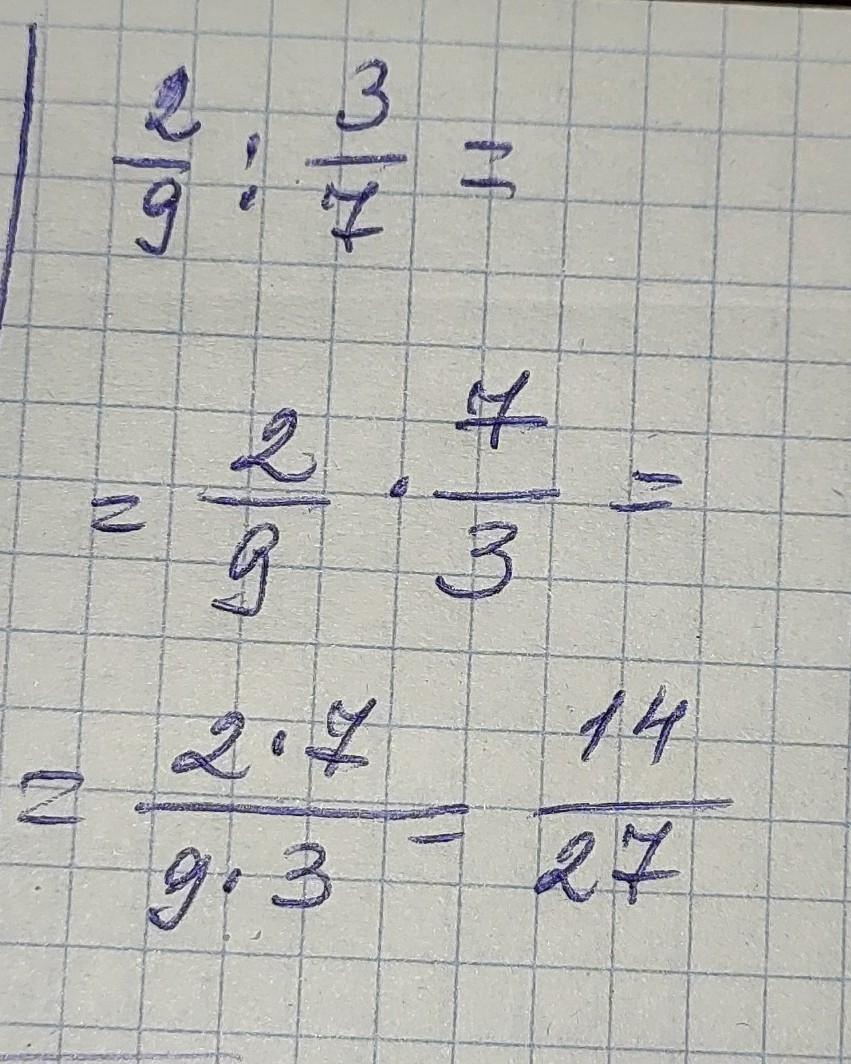 2/9 : 3/7 =
= 2/9 · 7/3 =
= 2·7/9·3 = 14/27